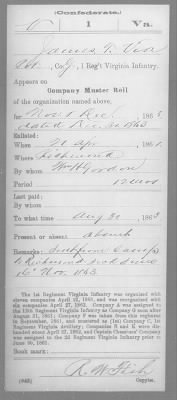 (Confederate.)
1 Va.
James T.
Co. G, 1 Reg't Virginia Infantry.
Appears on
Company Muster Roll
of the organization named above,
for Nov & Dec, 1863
dated Dec 31 1863
Enlisted:
When 21 Apr, 1861.
Where Richmond
By whom Wm H Gordon
Period
Last paid:
By whom
To what time Aug 30, 1863
Present or absent absent
Remarks: Camp
to Richmond since
Nov. 1863.
The 1st Regiment Virginia Infantry was organized with
eleven companies April 21, 1861, and was reorganized with
six companies April 27, 1862. Company A was assigned to
the 12th Regiment Virginia Infantry as Company G soon after
August 31, 1861. Company F was taken from this regiment
in September, 1861, and mustered as (1st) Company C, 1st
Regiment Virginia Artillery; Companies E and K were dis-
banded April 27, 1862, and Captain Chambers' Company
was assigned to the 23 Regiment Virginia Infantry prior to
June 30, 1861.
Book mark:
R. W. Fish
(642) Copyist.